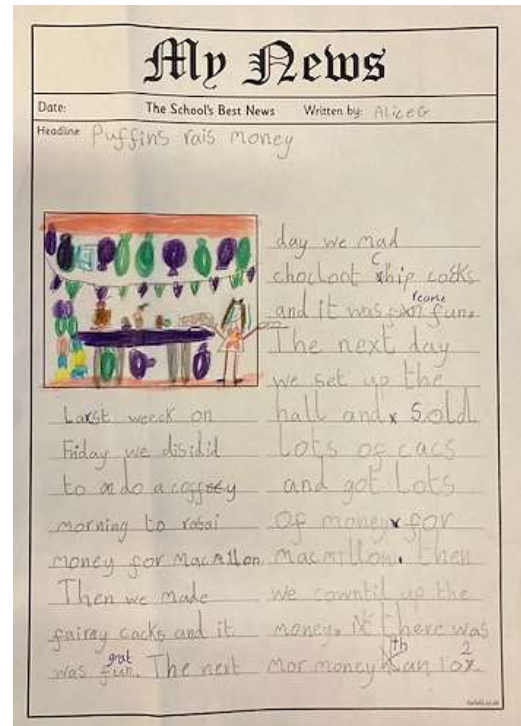 My News
Date: The School's Best News Written by: Alice G
Headline Puffins rais money
Last weeck on
Friday we disidid
to do a coffey
morning to
money for MacMllon.
Then we made
fairey cacks and it
was grat fun. The next
day we mad
chocloot chip
and it was fun.
The next day
we set up the
hall and sold
lots of cacs
and got lots
of money for
macmillon. Then
we cowntid up the
money. there was
mor money than